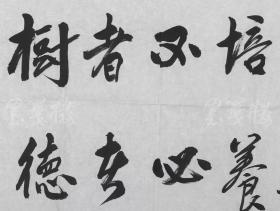 樹者必培
德者必養